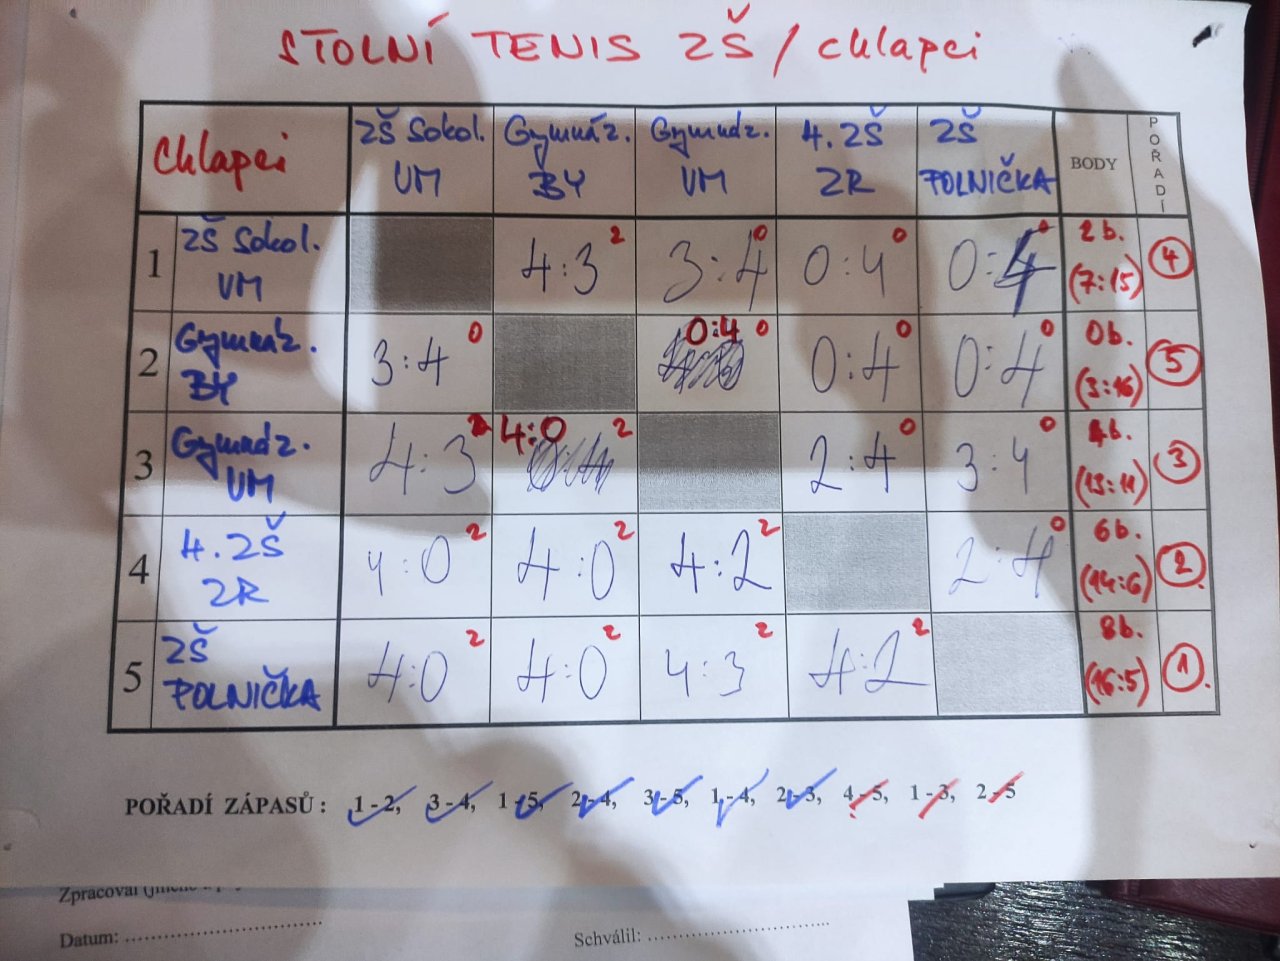 STOLNÍ TENIS ZŠ / chlapci
Chlapci
ZŠ Sokol. VM
Gymnáz. BY
Gymnáz. VM
4. ZŠ ZR
ZŠ POLNIČKA
BODY
POŘADÍ
1 ZŠ Sokol. VM 4:3 2 3:4 0 0:4 0 0:4 0 2b. (7:15) 4
2 Gymnáz. BY 3:4 0 0:4 0 0:4 0 0:4 0 0b. (3:16) 5
3 Gymnáz. VM 4:3 2 4:0 2 2:4 0 3:4 0 4b. (13:11) 3
4 4. ZŠ ZR 4:0 2 4:0 2 4:2 2 2:4 0 6b. (14:6) 2.
5 ZŠ POLNIČKA 4:0 2 4:0 2 4:3 2 4:2 2 8b. (16:5) 1.
POŘADÍ ZÁPASŮ : 1 - 2, 3 - 4, 1 - 5, 2 - 4, 3 - 5, 1 - 4, 2 - 3, 4 - 5, 1 - 3, 2 - 5
Zpracoval
Datum:
Schválil: